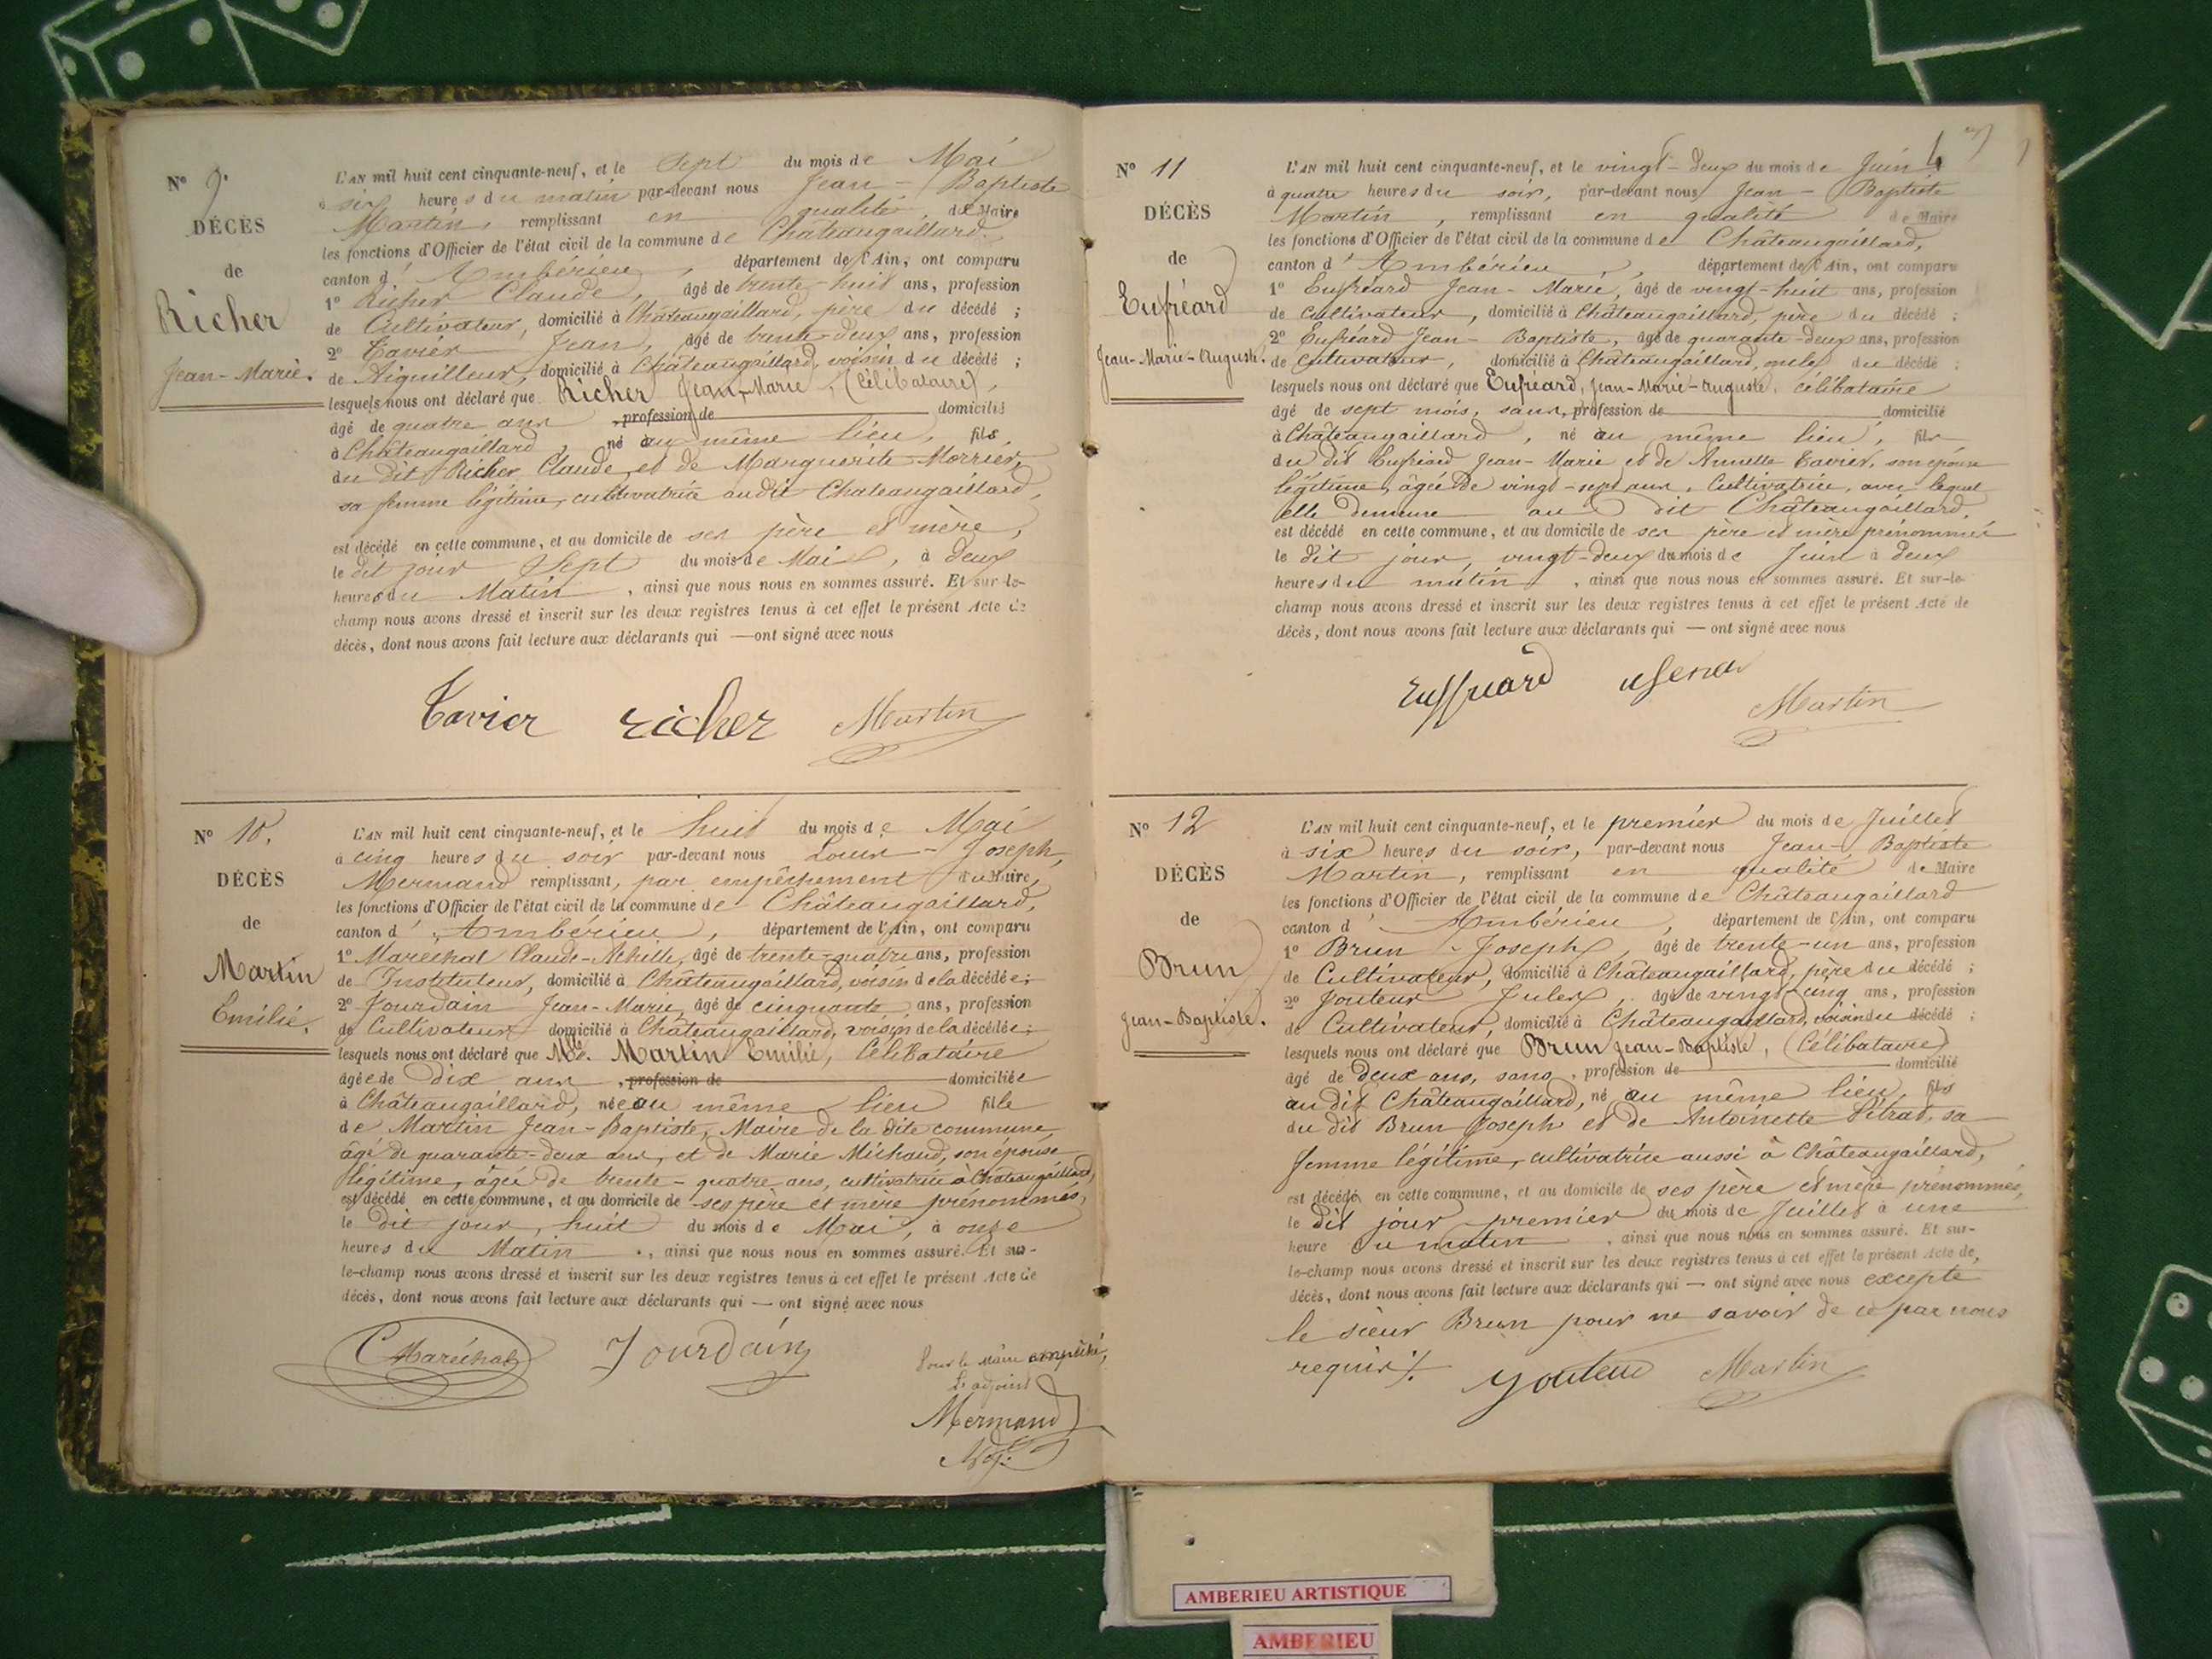 Nº 9.
DÉCÈS
de
Richer
Jean-Marie.
L'AN mil huit cent cinquante-neuf, et le Sept du mois de Mai
à six heures du matin par-devant nous Jean-Baptiste
Martin, remplissant en qualité de Maire
les fonctions d'Officier de l'état civil de la commune de Châteaugaillard.
canton d'Ambérieu, département de l'Ain, ont comparu
1º Richer Claude, âgé de trente-huit ans, profession
de Cultivateur, domicilié à Châteaugaillard, père du décédé ;
2º Tavier Jean, âgé de trente-deux ans, profession
de Aiguilleur, domicilié à Châteaugaillard, voisin du décédé ;
lesquels nous ont déclaré que Richer Jean-Marie, (Célibataire),
âgé de quatre ans, profession de domicilié
à Châteaugaillard, né au même lieu, fils
du dit Richer Claude, et de Marguerite Morrier,
sa femme légitime, cultivatrice audit Chateaugaillard,
est décédé en cette commune, et au domicile de ses père et mère,
le dit jour Sept du mois de Mai, à deux
heures du Matin, ainsi que nous nous en sommes assuré. Et sur-le-
champ nous avons dressé et inscrit sur les deux registres tenus à cet effet le présent Acte de
décès, dont nous avons fait lecture aux déclarants qui — ont signé avec nous
Tavier richer Martin
Nº 10.
DÉCÈS
de
Martin
Emilie.
L'AN mil huit cent cinquante-neuf, et le huit du mois de Mai
à cinq heures du soir par-devant nous Louis-Joseph
Mermand remplissant, par empêchement du Maire,
les fonctions d'Officier de l'état civil de la commune de Châteaugaillard,
canton d'Ambérieu, département de l'Ain, ont comparu
1º Maréchal Claude-Achille, âgé de trente-quatre ans, profession
de Instituteur, domicilié à Châteaugaillard, voisin de la décédée ;
2º Jourdain Jean-Marie, âgé de cinquante ans, profession
de Cultivateur domicilié à Châteaugaillard, voisin de la décédée ;
lesquels nous ont déclaré que Mlle. Martin Emilie, Célibataire
âgée de dix ans, profession de domiciliée
à Châteaugaillard, née au même lieu fille
de Martin Jean-Baptiste, Maire de la dite commune,
âgé de quarante-deux ans, et de Marie Michaud, son épouse
légitime, âgée de trente-quatre ans, cultivatrice à Châteaugaillard,
est décédé en cette commune, et au domicile de ses père et mère prénommés,
le dit jour, huit du mois de Mai, à onze
heures du Matin, ainsi que nous nous en sommes assuré. Et sur-
le-champ nous avons dressé et inscrit sur les deux registres tenus à cet effet le présent Acte de
décès, dont nous avons fait lecture aux déclarants qui — ont signé avec nous
C Maréchal Jourdain
Pour le Maire empêché,
L'adjoint
Mermand
Adj.
Nº 11
DÉCÈS
de
Eufréard
Jean-Marie-Auguste.
L'AN mil huit cent cinquante-neuf, et le vingt-deux du mois de Juin
à quatre heures du soir, par-devant nous Jean-Baptiste
Martin, remplissant en qualité de Maire
les fonctions d'Officier de l'état civil de la commune de Châteaugaillard,
canton d'Ambérieu, département de l'Ain, ont comparu
1º Eufréard Jean-Marie, âgé de vingt-huit ans, profession
de cultivateur, domicilié à Châteaugaillard, père du décédé ;
2º Eufréard Jean-Baptiste, âgé de quarante-deux ans, profession
de Cultivateur, domicilié à Châteaugaillard, oncle du décédé ;
lesquels nous ont déclaré que Eufréard, Jean-Marie-Auguste, célibataire
âgé de sept mois, sans, profession de domicilié
à Châteaugaillard, né au même lieu, fils
du dit Eufréard Jean-Marie et de Annette Tavier, son épouse
légitime, âgée de vingt-sept ans, Cultivatrice, avec lequel
elle demeure au dit Châteaugaillard,
est décédé en cette commune, et au domicile de ses père et mère prénommés
le dit jour, vingt-deux du mois de Juin à deux
heures du matin, ainsi que nous nous en sommes assuré. Et sur-le-
champ nous avons dressé et inscrit sur les deux registres tenus à cet effet le présent Acte de
décès, dont nous avons fait lecture aux déclarants qui — ont signé avec nous
Martin
Nº 12
DÉCÈS
de
Brun
Jean-Baptiste.
L'AN mil huit cent cinquante-neuf, et le premier du mois de Juillet
à six heures du soir, par-devant nous Jean-Baptiste
Martin, remplissant en qualité de Maire
les fonctions d'Officier de l'état civil de la commune de Châteaugaillard
canton d'Ambérieu, département de l'Ain, ont comparu
1º Brun Joseph, âgé de trente-un ans, profession
de Cultivateur, domicilié à Châteaugaillard, père du décédé ;
2º Jouteur Jules, âgé de vingt-cinq ans, profession
de Cultivateur, domicilié à Châteaugaillard, voisin du décédé ;
lesquels nous ont déclaré que Brun Jean-Baptiste, (Célibataire)
âgé de deux ans, sans, profession de domicilié
au dit Châteaugaillard, né au même lieu, fils
du dit Brun Joseph et de Antoinette Pétrad, sa
femme légitime, cultivatrice aussi à Châteaugaillard,
est décédé en cette commune, et au domicile de ses père et mère prénommés,
le dit jour premier du mois de Juillet à une
heure du matin, ainsi que nous nous en sommes assuré. Et sur-
le-champ nous avons dressé et inscrit sur les deux registres tenus à cet effet le présent Acte de
décès, dont nous avons fait lecture aux déclarants qui — ont signé avec nous excepté
le sieur Brun pour ne savoir de ce par nous
requis.
Martin
AMBERIEU ARTISTIQUE
AMBERIEU